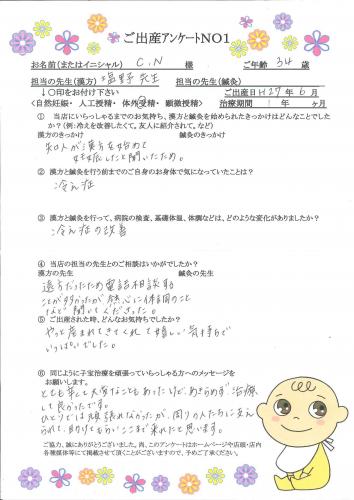 ご出産アンケートNO1
お名前(またはイニシャル) C.N 様 ご年齢 34 歳
担当の先生(漢方) 塩野先生 担当の先生(鍼灸)
↓〇印をお付け下さい ご出産日H27年6月
<自然妊娠・人工授精・体外受精・顕微授精> 治療期間 1年 ヶ月
① 当店にいらっしゃるまでのお気持ち、漢方と鍼灸を始められたきっかけはどんなことでしたか?(例:冷えを改善したくて。友人に紹介されて。など)
漢方のきっかけ 鍼灸のきっかけ
知人が漢方を始めて
妊娠したと聞いたため。
② 漢方と鍼灸を行う前までのご自身のお身体で気になっていたことは?
冷え症
③ 漢方と鍼灸を行って、病院の検査、基礎体温、体調などは、どのような変化がありましたか?
冷え症の改善
④ 当店の担当の先生とのご相談はいかがでしたか?
漢方の先生 鍼灸の先生
遠方だったため電話相談する
ことが多かったが熱心に体調のこと
など聞いてくださった。
⑤ ご出産された時、どんなお気持ちでしたか?
やっと産まれてきてくれて嬉しい気持ちで
いっぱいでした。
⑥ 同じように子宝治療を頑張っていらっしゃる方へのメッセージを
お願いします。
とても辛くて大変なこともあったけど、あきらめず治療
して良かったです。
ひとりでは頑張れなかったが、周りの人たちに支え
られて、助けてもらいここまで来れたと思います。
ご協力、誠にありがとうございました。尚、このアンケートはホームページや店頭・店内
各種媒体等にて掲載させて頂くことがございますので、予めご了承ください。